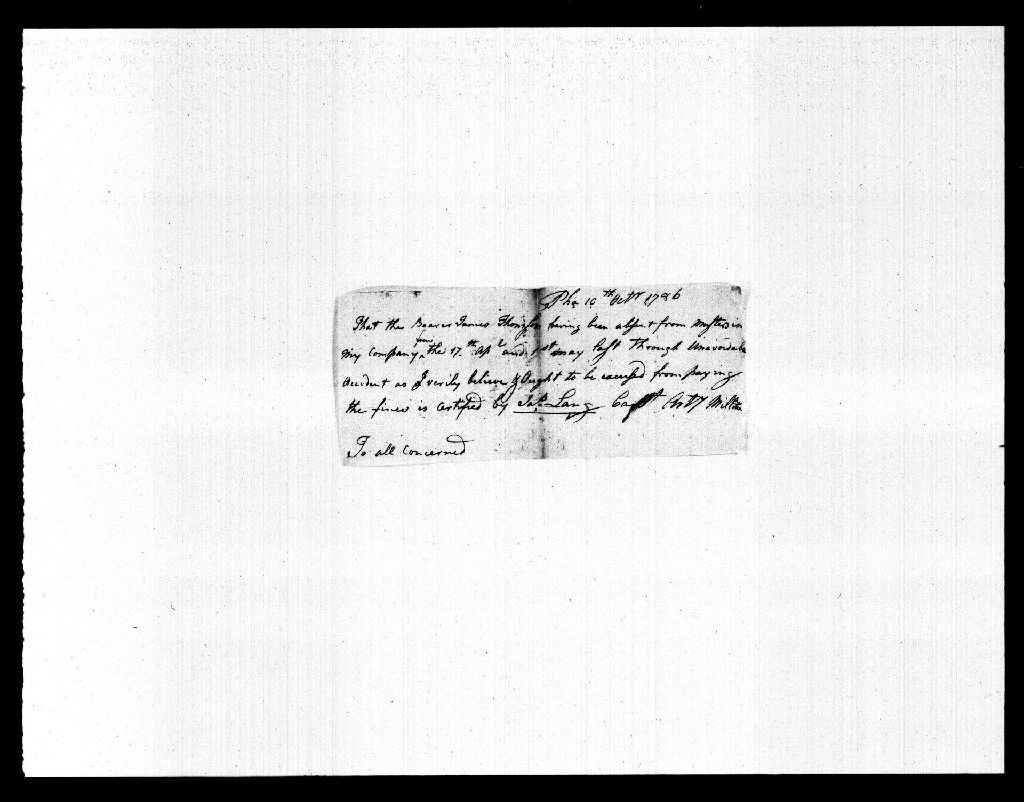 Pha 10th Octr 1786
That the Bearer James Thompson having been absent from musters in
my Company from the 17th Apl and 1st may last Through Unavoidable
Accident as I verily believe & Ought to be excused from paying
the fines is certified by Jas Lang Capt Arty Militia
To all concerned